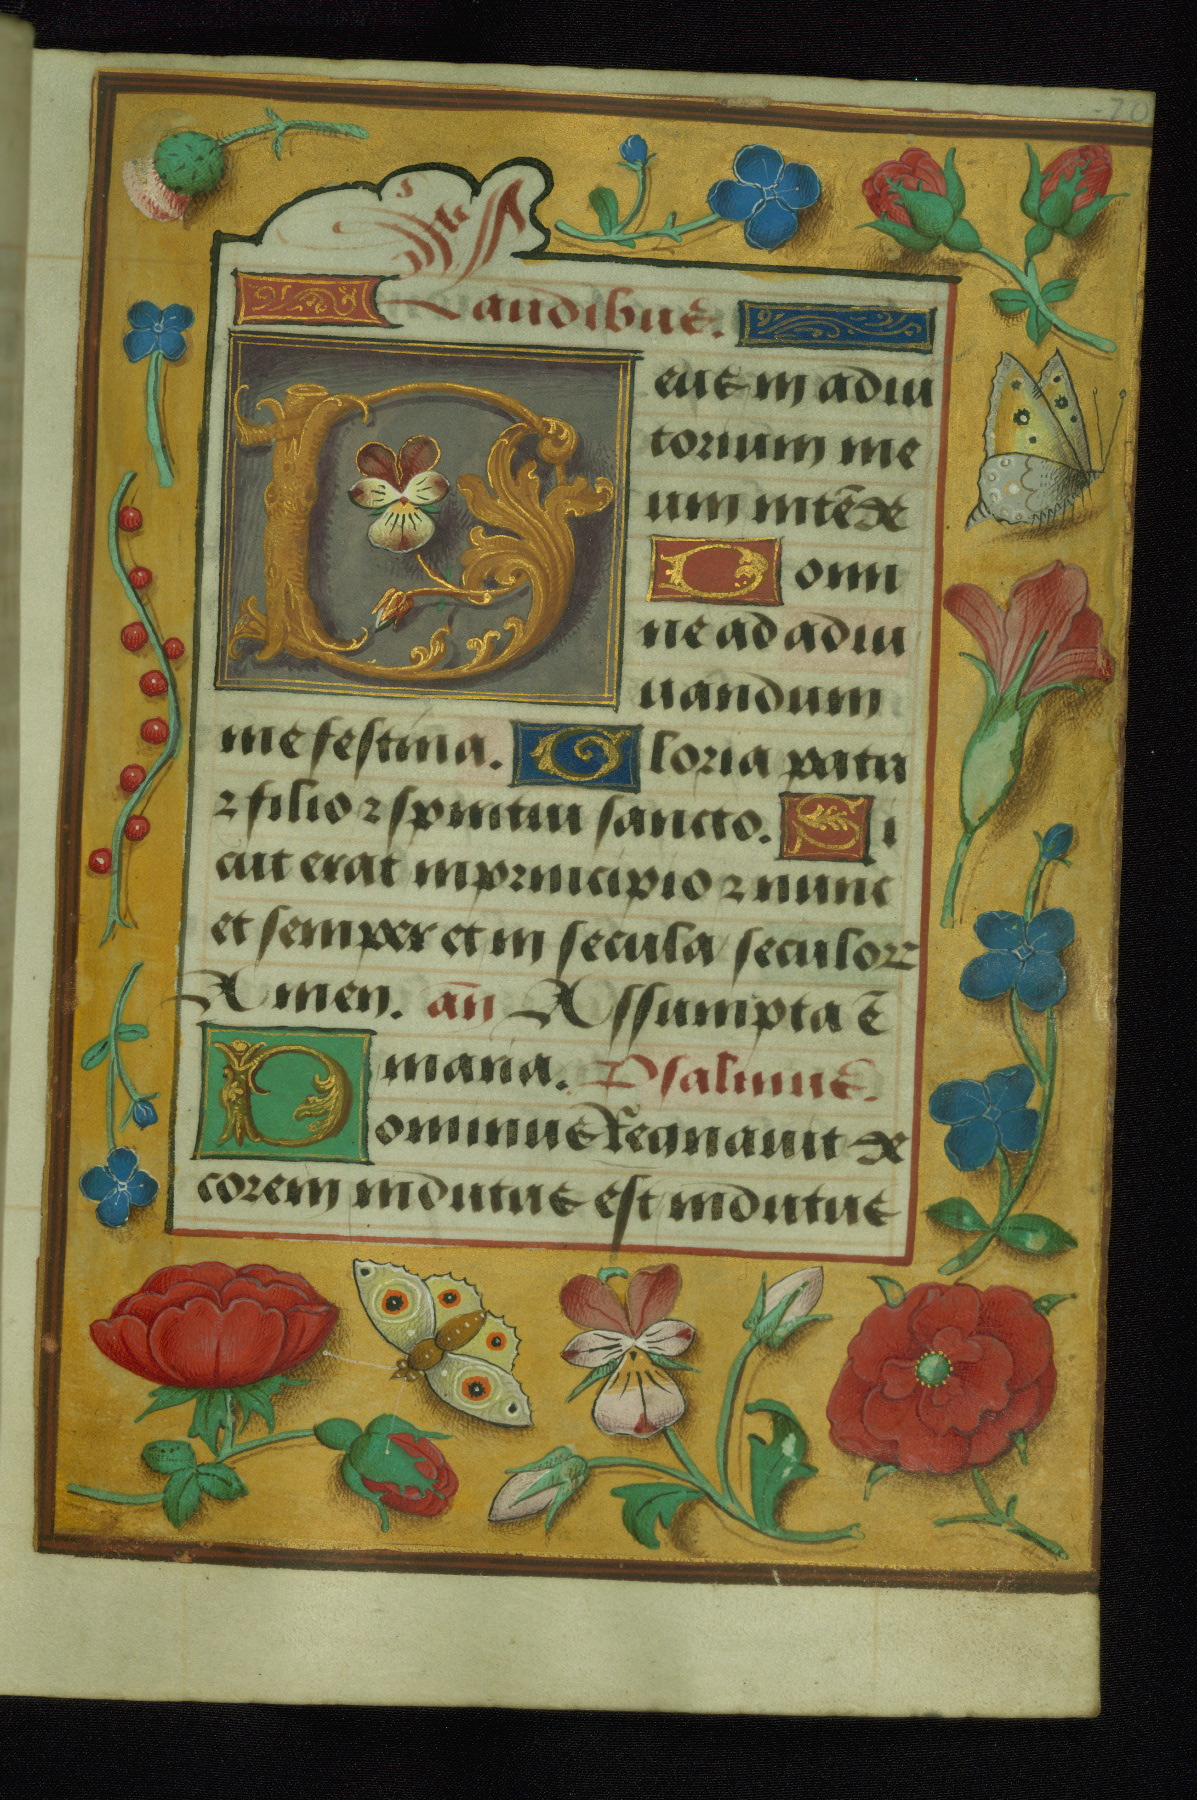 70
In
Laudibus.
Deus in adiu
torium me
um intēde
Domi
ne ad adiu
uandum
me festina. Gloria patri
⁊ filio ⁊ spiritui sancto. Si
cut erat in principio ⁊ nunc
et semper et in secula seculoꝝ
Amen. an̄ Assumpta ē
maria. Psalmus.
Dominus Regnauit de
corem indutus est indutus